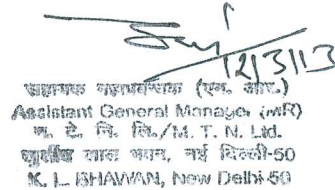 12/3/13
सहायक महाप्रबन्धक (एम. आर.)
Assistant General Manager (MR)
म. टे. नि. लि./M. T. N. Ltd.
खुर्शीद लाल भवन, नई दिल्ली-50
K. L. BHAWAN, New Delhi-50